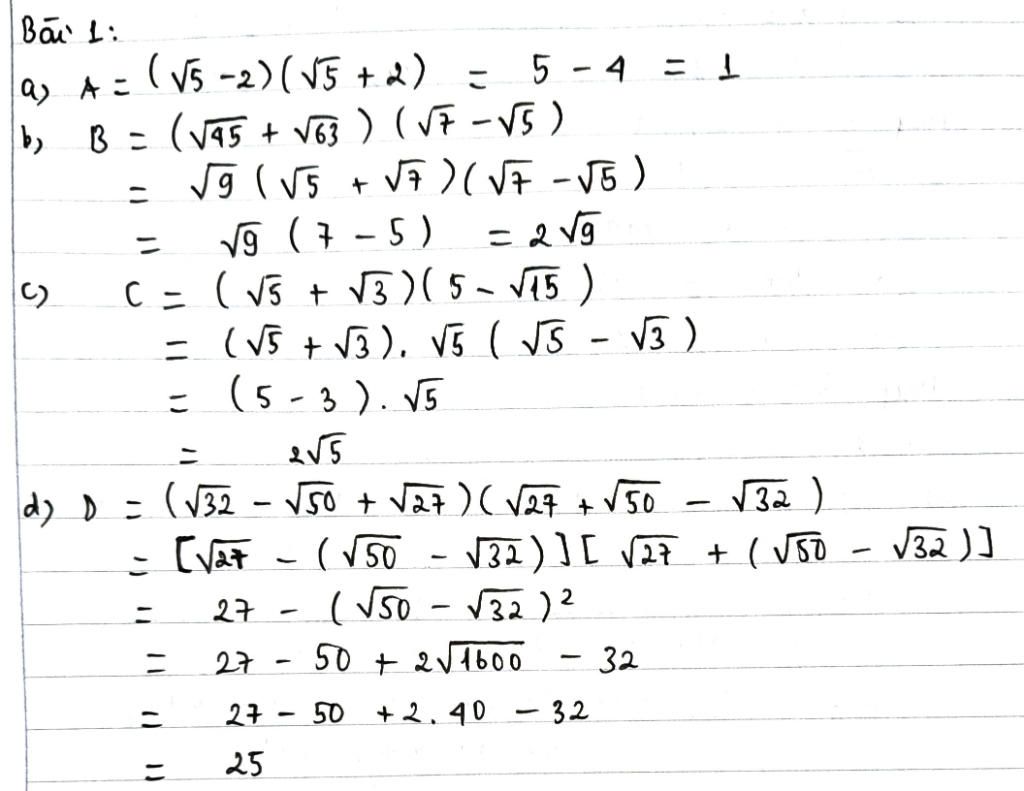 Bài 1:
a) A = (√5 - 2)(√5 + 2) = 5 - 4 = 1
b) B = (√45 + √63)(√7 - √5)
= √9 (√5 + √7)(√7 - √5)
= √9 (7 - 5) = 2√9
c) C = (√5 + √3)(5 - √15)
= (√5 + √3). √5 (√5 - √3)
= (5 - 3). √5
= 2√5
d) D = (√32 - √50 + √27)(√27 + √50 - √32)
= [√27 - (√50 - √32)][√27 + (√50 - √32)]
= 27 - (√50 - √32)²
= 27 - 50 + 2√1600 - 32
= 27 - 50 + 2. 40 - 32
= 25